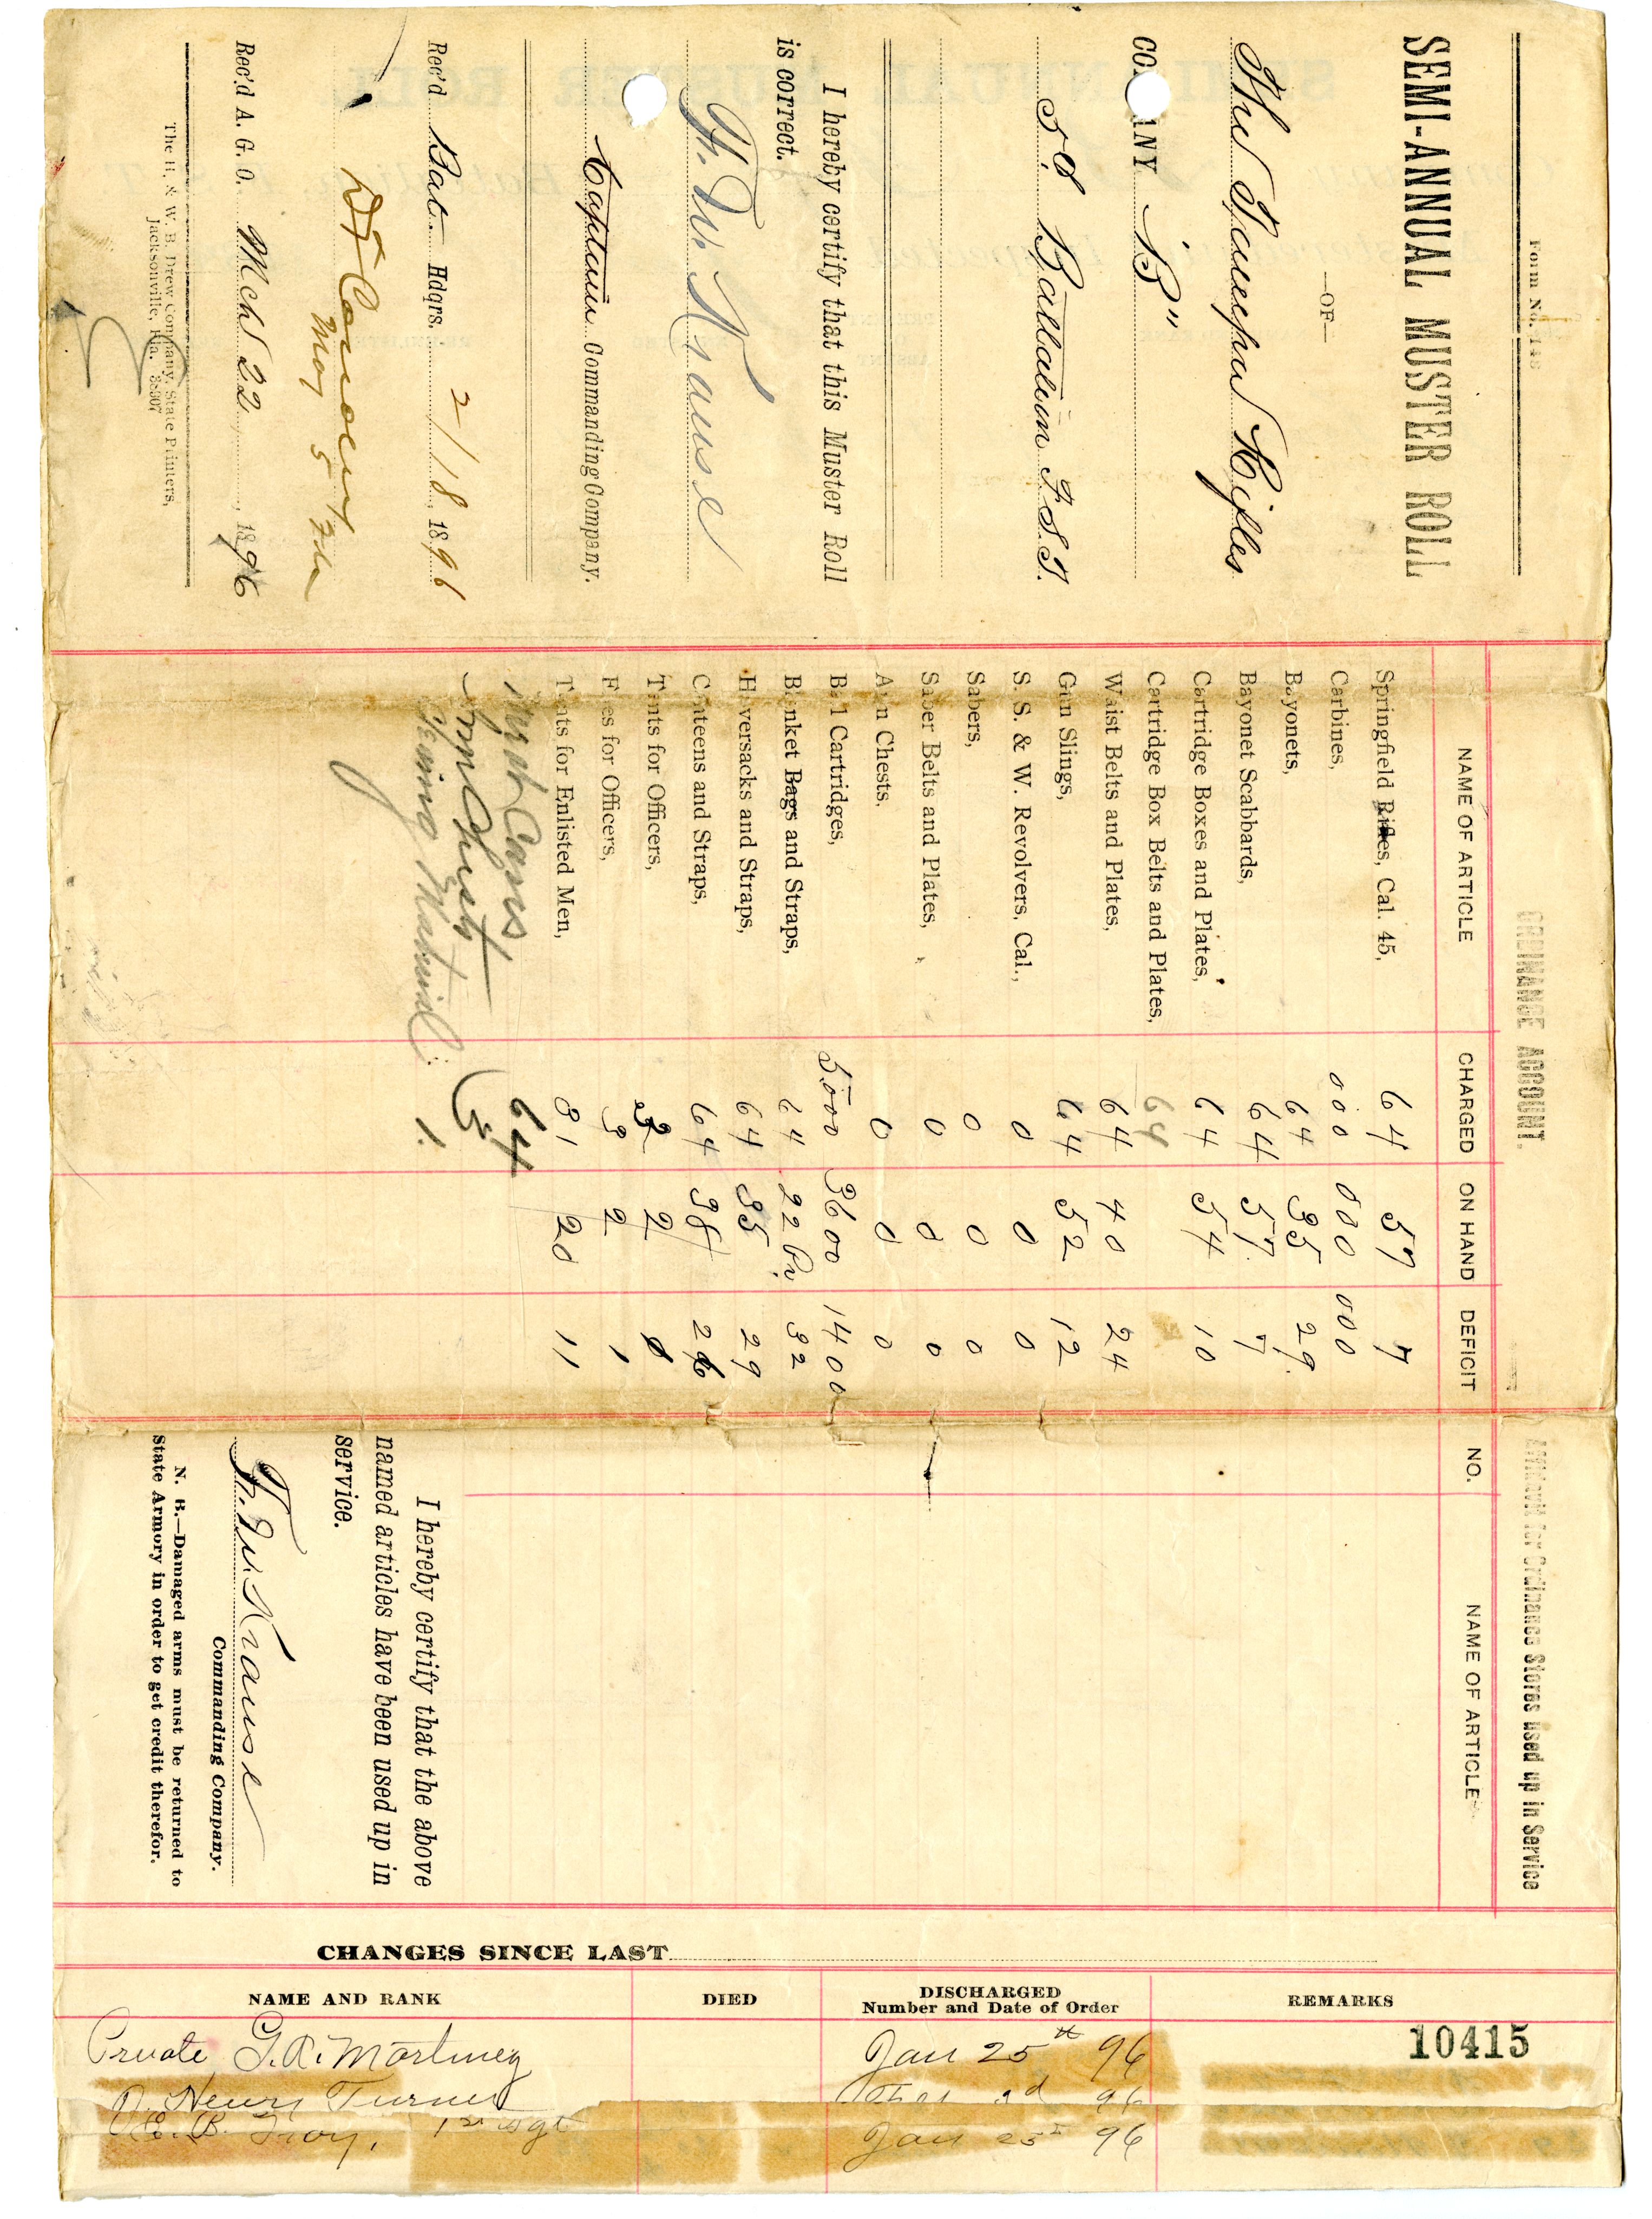 Form No. 148
SEMI-ANNUAL MUSTER ROLL
—OF—
The Tampa Rifles
COMPANY "B"
5th Battalion F.S.T.
I hereby certify that this Muster Roll
is correct.
F. W. Krause
Captain Commanding Company.
Rec'd Bat. Hdqrs. 2/18, 1896
May 5
Rec'd A. G. O. Mch 22, 1896
The H. & W. B. Drew Company, State Printers,
Jacksonville, Fla.
ORDINANCE ACCOUNT.
NAME OF ARTICLE CHARGED ON HAND DEFICIT
Springfield Rifles, Cal. 45, 64 57 7
Carbines, 000 000 000
Bayonets, 64 35 29
Bayonet Scabbards, 64 57 7
Cartridge Boxes and Plates, 64 54 10
Cartridge Box Belts and Plates, 64
Waist Belts and Plates, 64 40 24
Gun Slings, 64 52 12
S. S. & W. Revolvers, Cal., 0 0 0
Sabers, 0 0 0
Saber Belts and Plates, 0 0 0
Arm Chests, 0 0 0
Ball Cartridges, 5000 3600 1400
Blanket Bags and Straps, 64 22 32
Haversacks and Straps, 64 35 29
Canteens and Straps, 64 38 26
Tents for Officers, 2
Flies for Officers, 3 2 1
Tents for Enlisted Men, 31 20 11
64
Arm Chests 3
1.
Affidavit for Ordinance Stores used up in Service
NO. NAME OF ARTICLE
I hereby certify that the above
named articles have been used up in
service.
F. W. Krause
Commanding Company.
N. B.—Damaged arms must be returned to
State Armory in order to get credit therefor.
CHANGES SINCE LAST
NAME AND RANK DIED DISCHARGED Number and Date of Order REMARKS
10415
Private G. A. Martinez Jan 25th 96
Henry Turner 96
E. B. Troy, 1st Sgt Jan 25th 96